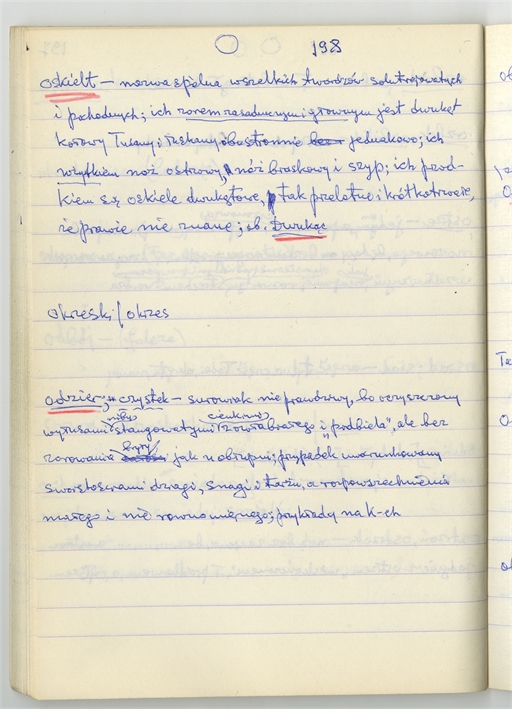 198
oskielt — nazwa spólna wszelkich twardzów solutrejowatych
i pochodnych; ich zorem zasadniczym i głównym jest dwukąt
korowy Tusany i Teskany, obustronnie jednakowo; ich
użytkiem noż ostrowy, nóż braskowy i szyp; ich
są oskiele dwukątowe, tak przelotne i krótkotrwałe,
że prawie nie znane; ob. Dwukąc
okreski/okres
odzier, czystek — surowiak nieprawdziwy, bo oczyszczony
niby cienkimi
wyrusami stangowatymi i "podbiela", ale bez
zorowania jak u obłupni; przypadek uwarunkowany
swoistościami dzagi, snagi i tarzu, a rozpowszechnienia
małego i nie równomiernego; przykłady na K-ch